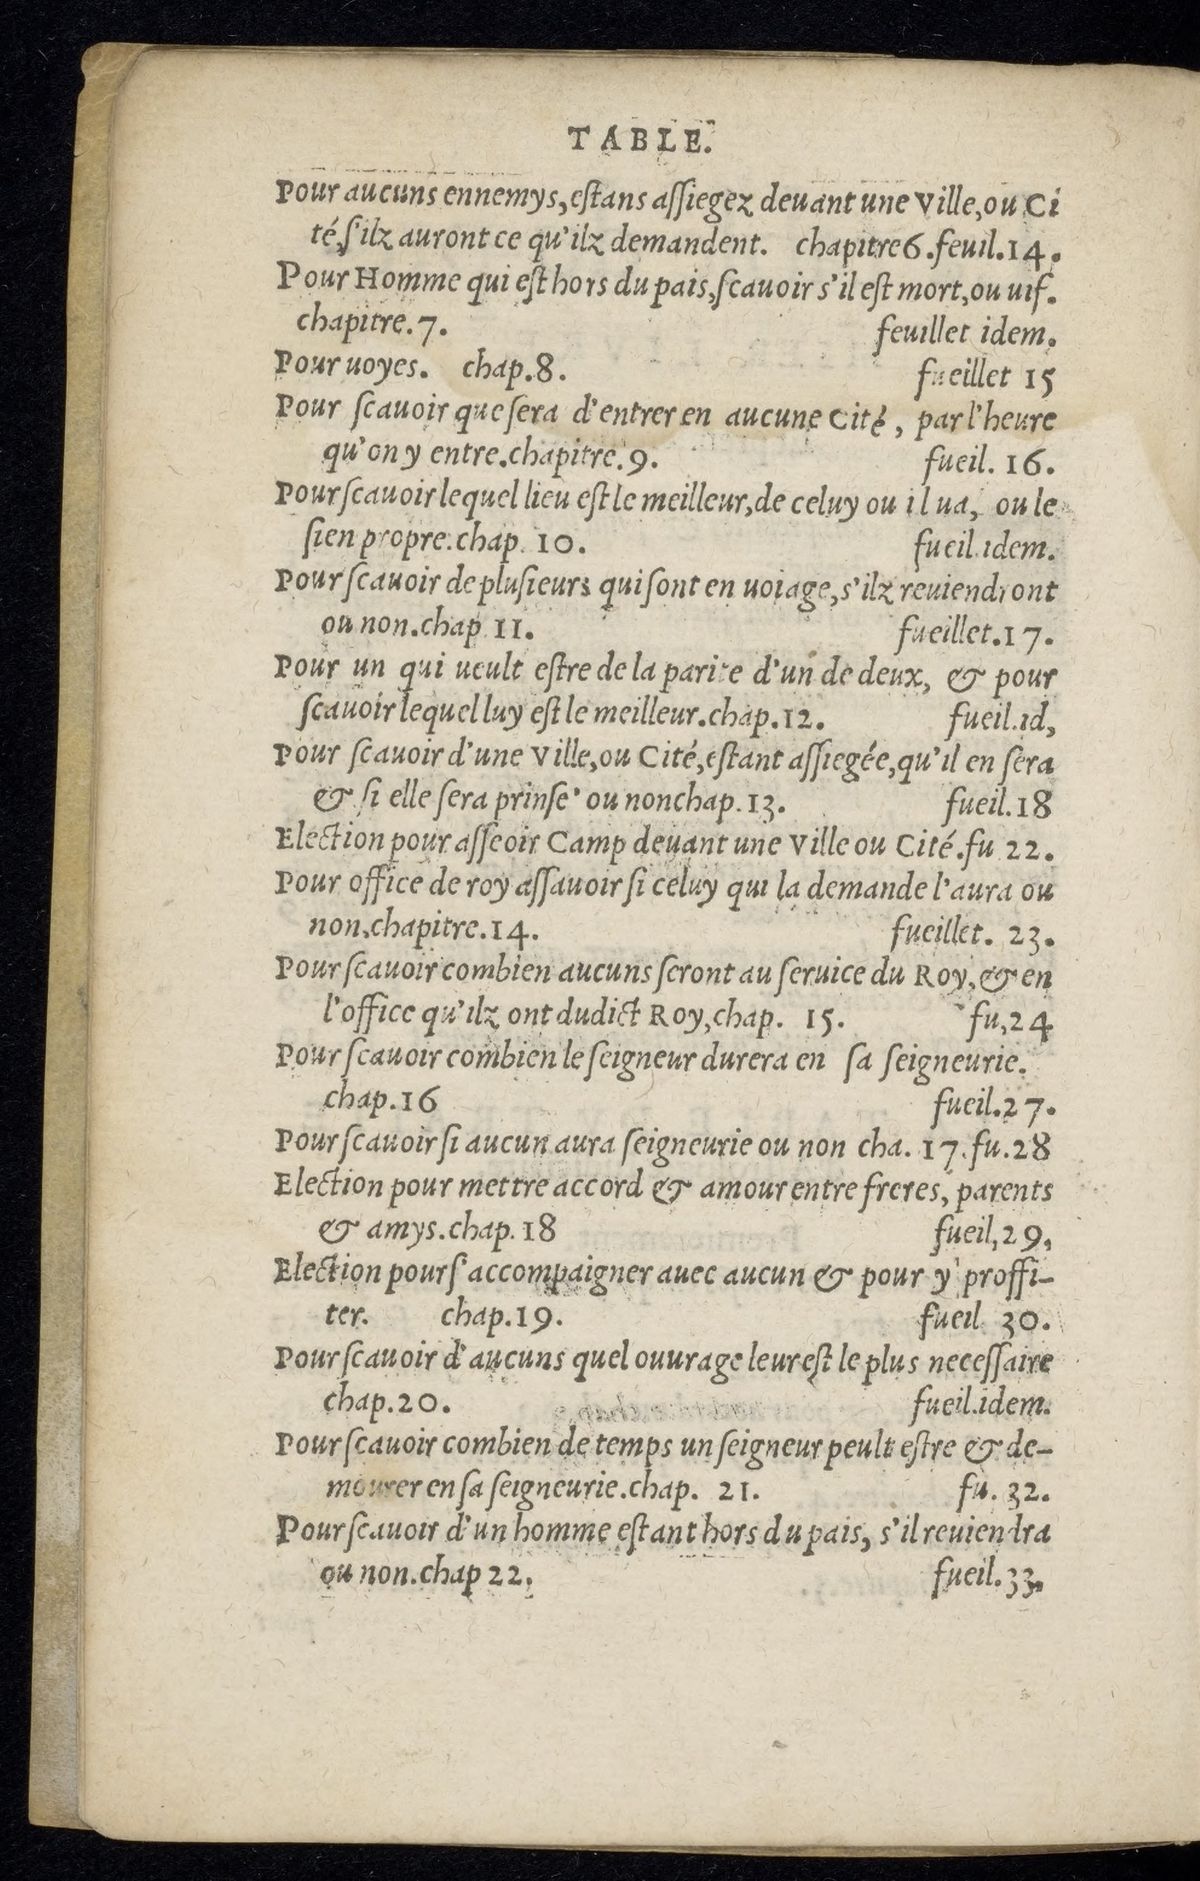 TABLE.
Pour aucuns ennemys, eſtans aſſiegez deuant une Ville, ou Ci
té, ſ'ilz auront ce qu'ilz demandent. chapitre 6. feuil. 14.
Pour Homme qui eſt hors du pais, ſcauoir s'il eſt mort, ou uif.
chapitre. 7. feuillet idem.
Pour uoyes. chap. 8. fueillet 15
Pour ſcauoir que ſera d'entrer en aucune Cité, par l'heure
qu'on y entre. chapitre. 9. fueil. 16.
Pour ſcauoir lequel lieu eſt le meilleur, de celuy ou il ua, ou le
ſien propre. chap. 10. fueil. idem.
Pour ſcauoir de pluſieurs qui ſont en uoiage, s'ilz reuiendront
ou non. chap 11. fueillet. 17.
Pour un qui ueult eſtre de la partie d'un de deux, & pour
ſcauoir lequel luy eſt le meilleur. chap. 12. fueil. id,
Pour ſcauoir d'une Ville, ou Cité, eſtant aſſiegée, qu'il en ſera
& ſi elle ſera prinſe' ou non chap. 13. fueil. 18
Election pour aſſeoir Camp deuant une Ville ou Cité. fu 22.
Pour office de roy aſſauoir ſi celuy qui la demande l'aura ou
non, chapitre. 14. fueillet. 23.
Pour ſcauoir combien aucuns ſeront au ſeruice du Roy, & en
l'office qu'ilz ont dudict Roy, chap. 15. fu, 24
Pour ſcauoir combien le ſeigneur durera en ſa ſeigneurie.
chap. 16 fueil. 27.
Pour ſcauoir ſi aucun aura ſeigneurie ou non cha. 17. fu. 28
Election pour mettre accord & amour entre freres, parents
& amys. chap. 18 fueil, 29,
Election pour ſ'accompaigner auec aucun & pour y proffi-
ter. chap. 19. fueil 30.
Pour ſcauoir d'aucuns quel ouurage leur eſt le plus neceſſaire
chap. 20. fueil. idem.
Pour ſcauoir combien de temps un ſeigneur peult eſtre & de-
mourer en ſa ſeigneurie. chap. 21. fu. 32.
Pour ſcauoir d'un homme eſtant hors du pais, s'il reuiendra
ou non. chap 22. fueil. 33,